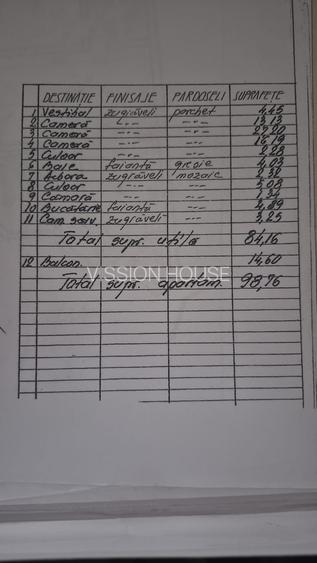 DESTINAȚIE FINISAJE PARDOSELI SUPRAFEȚE
1 Vestibul zugrăveli parchet 4,45
2 Cameră -"- -"- 13,13
3 Cameră -"- -"-
4 Cameră -"- -"-
5 Culoar -"- -"-
6 Baie faianță gresie 4,03
7 zugrăveli mozaic
8 Culoar -"- -"- 5,08
9 Cămară -"- -"-
10 Bucătărie faianță -"-
11 Cam. serv. zugrăveli -"- 3,25
Total supr. utilă 84,16
12 Balcon. 14,60
Total supr. apartam. 98,76
VISSION HOUSE